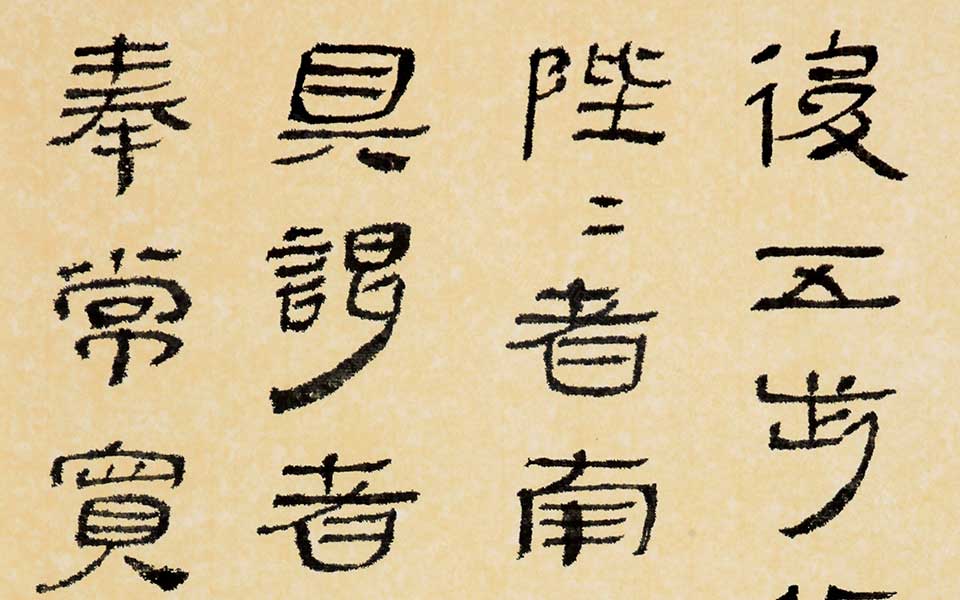 後五步
陛＝者南
具謁者
奉常賓